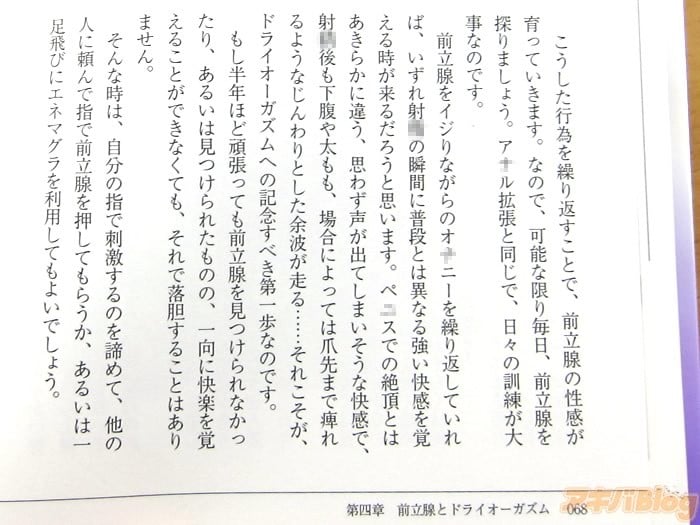 こうした行為を繰り返すことで、前立腺の性感が
育っていきます。なので、可能な限り毎日、前立腺を
探りましょう。ア ル拡張と同じで、日々の訓練が大
事なのです。
前立腺をイジりながらのオ ニーを繰り返していれ
ば、いずれ射 の瞬間に普段とは異なる強い快感を覚
える時が来るだろうと思います。ペ スでの絶頂とは
あきらかに違う、思わず声が出てしまいそうな快感で、
射 後も下腹や太もも、場合によっては爪先まで痺れ
るようなじんわりとした余波が走る……それこそが、
ドライオーガズムへの記念すべき第一歩なのです。
もし半年ほど頑張っても前立腺を見つけられなかっ
たり、あるいは見つけられたものの、一向に快楽を覚
えることができなくても、それで落胆することはあり
ません。
そんな時は、自分の指で刺激するのを諦めて、他の
人に頼んで指で前立腺を押してもらうか、あるいは一
足飛びにエネマグラを利用してもよいでしょう。
第四章 前立腺とドライオーガズム 068
アキバBlog